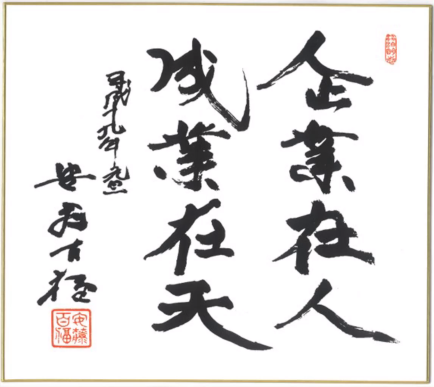 企業在人
成業在天
平成十九年元旦
安藤百福
安藤
百福